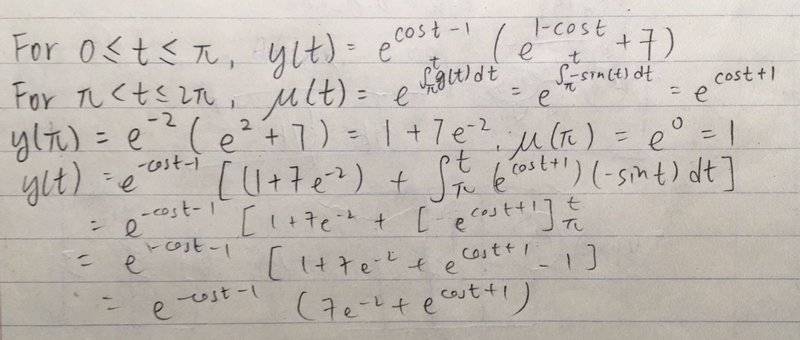 For 0 ≤ t ≤ π, y(t) = e^{cost-1} (e^{1-cost} + 7)
For π < t ≤ 2π, μ(t) = e^{∫_π^t g(t)dt} = e^{∫_π^t -sin(t)dt} = e^{cost+1}
y(π) = e^{-2} (e^2 + 7) = 1 + 7e^{-2}, μ(π) = e^0 = 1
y(t) = e^{-cost-1} [(1+7e^{-2}) + ∫_π^t (e^{cost+1})(-sint)dt]
= e^{-cost-1} [1+7e^{-2} + [e^{cost+1}]_π^t
= e^{-cost-1} [1+7e^{-2} + e^{cost+1} - 1]
= e^{-cost-1} (7e^{-2} + e^{cost+1})